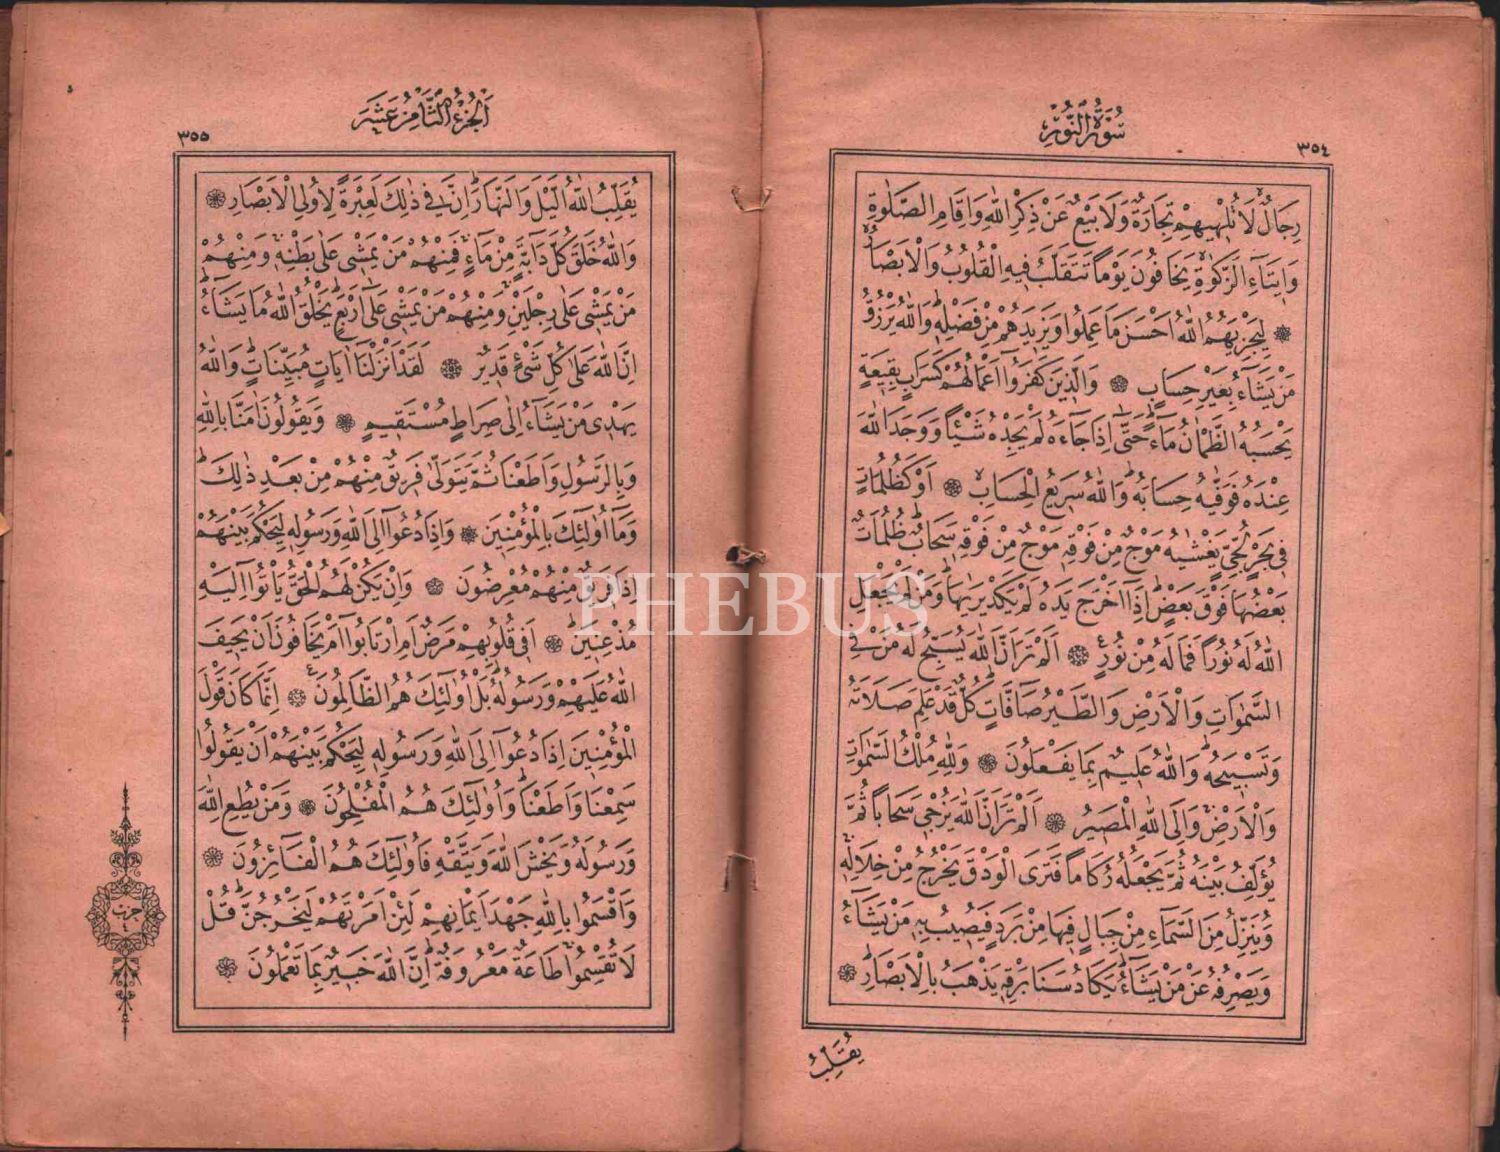 سُورَةُ النُّورِ
٣٥٤
رِجَالٌ لَا تُلْهٖيهِمْ تِجَارَةٌ وَلَا بَيْعٌ عَنْ ذِكْرِ اللّٰهِ وَاِقَامِ الصَّلٰوةِ
وَاٖيتَٓاءِ الزَّكٰوةِ يَخَافُونَ يَوْمًا تَتَقَلَّبُ فٖيهِ الْقُلُوبُ وَالْاَبْصَارُ
لِيَجْزِيَهُمُ اللّٰهُ اَحْسَنَ مَا عَمِلُوا وَيَزٖيدَهُمْ مِنْ فَضْلِهٖ وَاللّٰهُ يَرْزُقُ
مَنْ يَشَٓاءُ بِغَيْرِ حِسَابٍ وَالَّذٖينَ كَفَرُٓوا اَعْمَالُهُمْ كَسَرَابٍ بِقٖيعَةٍ
يَحْسَبُهُ الظَّمْاٰنُ مَٓاءً حَتّٰٓى اِذَا جَٓاءَهُ لَمْ يَجِدْهُ شَيْـًٔا وَوَجَدَ اللّٰهَ
عِنْدَهُ فَوَفّٰيهُ حِسَابَهُ وَاللّٰهُ سَرٖيعُ الْحِسَابِ اَوْ كَظُلُمَاتٍ
فٖى بَحْرٍ لُجِّىٍّ يَغْشٰيهُ مَوْجٌ مِنْ فَوْقِهٖ مَوْجٌ مِنْ فَوْقِهٖ سَحَابٌ ظُلُمَاتٌ
بَعْضُهَا فَوْقَ بَعْضٍ اِذَٓا اَخْرَجَ يَدَهُ لَمْ يَكَدْ يَرٰيهَا وَمَنْ لَمْ يَجْعَلِ
اللّٰهُ لَهُ نُورًا فَمَا لَهُ مِنْ نُورٍ اَلَمْ تَرَ اَنَّ اللّٰهَ يُسَبِّحُ لَهُ مَنْ فِى
السَّمٰوَاتِ وَالْاَرْضِ وَالطَّيْرُ صَٓافَّاتٍ كُلٌّ قَدْ عَلِمَ صَلَاتَهُ
وَتَسْبٖيحَهُ وَاللّٰهُ عَلٖيمٌ بِمَا يَفْعَلُونَ وَلِلّٰهِ مُلْكُ السَّمٰوَاتِ
وَالْاَرْضِ وَاِلَى اللّٰهِ الْمَصٖيرُ اَلَمْ تَرَ اَنَّ اللّٰهَ يُزْجٖى سَحَابًا ثُمَّ
يُؤَلِّفُ بَيْنَهُ ثُمَّ يَجْعَلُهُ رُكَامًا فَتَرَى الْوَدْقَ يَخْرُجُ مِنْ خِلَالِهٖ
وَيُنَزِّلُ مِنَ السَّمَٓاءِ مِنْ جِبَالٍ فٖيهَا مِنْ بَرَدٍ فَيُصٖيبُ بِهٖ مَنْ يَشَٓاءُ
وَيَصْرِفُهُ عَنْ مَنْ يَشَٓاءُ يَكَادُ سَنَا بَرْقِهٖ يَذْهَبُ بِالْاَبْصَارِ
يُقَلِّبُ
اَلْجُزْءُ الثَّامِنُ عَشَرَ
٣٥٥
يُقَلِّبُ اللّٰهُ الَّيْلَ وَالنَّهَارَ اِنَّ فٖى ذٰلِكَ لَعِبْرَةً لِاُولِى الْاَبْصَارِ
وَاللّٰهُ خَلَقَ كُلَّ دَٓابَّةٍ مِنْ مَٓاءٍ فَمِنْهُمْ مَنْ يَمْشٖى عَلٰى بَطْنِهٖ وَمِنْهُمْ
مَنْ يَمْشٖى عَلٰى رِجْلَيْنِ وَمِنْهُمْ مَنْ يَمْشٖى عَلٰٓى اَرْبَعٍ يَخْلُقُ اللّٰهُ مَا يَشَٓاءُ
اِنَّ اللّٰهَ عَلٰى كُلِّ شَىْءٍ قَدٖيرٌ لَقَدْ اَنْزَلْنَٓا اٰيَاتٍ مُبَيِّنَاتٍ وَاللّٰهُ
يَهْدٖى مَنْ يَشَٓاءُ اِلٰى صِرَاطٍ مُسْتَقٖيمٍ وَيَقُولُونَ اٰمَنَّا بِاللّٰهِ
وَبِالرَّسُولِ وَاَطَعْنَا ثُمَّ يَتَوَلّٰى فَرٖيقٌ مِنْهُمْ مِنْ بَعْدِ ذٰلِكَ
وَمَٓا اُولٰٓئِكَ بِالْمُؤْمِنٖينَ وَاِذَا دُعُٓوا اِلَى اللّٰهِ وَرَسُولِهٖ لِيَحْكُمَ بَيْنَهُمْ
اِذَا فَرٖيقٌ مِنْهُمْ مُعْرِضُونَ وَاِنْ يَكُنْ لَهُمُ الْحَقُّ يَاْتُٓوا اِلَيْهِ
مُذْعِنٖينَ اَفٖى قُلُوبِهِمْ مَرَضٌ اَمِ ارْتَابُٓوا اَمْ يَخَافُونَ اَنْ يَحٖيفَ
اللّٰهُ عَلَيْهِمْ وَرَسُولُهُ بَلْ اُولٰٓئِكَ هُمُ الظَّالِمُونَ اِنَّمَا كَانَ قَوْلَ
الْمُؤْمِنٖينَ اِذَا دُعُٓوا اِلَى اللّٰهِ وَرَسُولِهٖ لِيَحْكُمَ بَيْنَهُمْ اَنْ يَقُولُوا
سَمِعْنَا وَاَطَعْنَا وَاُولٰٓئِكَ هُمُ الْمُفْلِحُونَ وَمَنْ يُطِعِ اللّٰهَ
وَرَسُولَهُ وَيَخْشَ اللّٰهَ وَيَتَّقْهِ فَاُولٰٓئِكَ هُمُ الْفَٓائِزُونَ
وَاَقْسَمُوا بِاللّٰهِ جَهْدَ اَيْمَانِهِمْ لَئِنْ اَمَرْتَهُمْ لَيَخْرُجُنَّ قُلْ
لَا تُقْسِمُوا طَاعَةٌ مَعْرُوفَةٌ اِنَّ اللّٰهَ خَبٖيرٌ بِمَا تَعْمَلُونَ
حزب
٤
PHEBUS